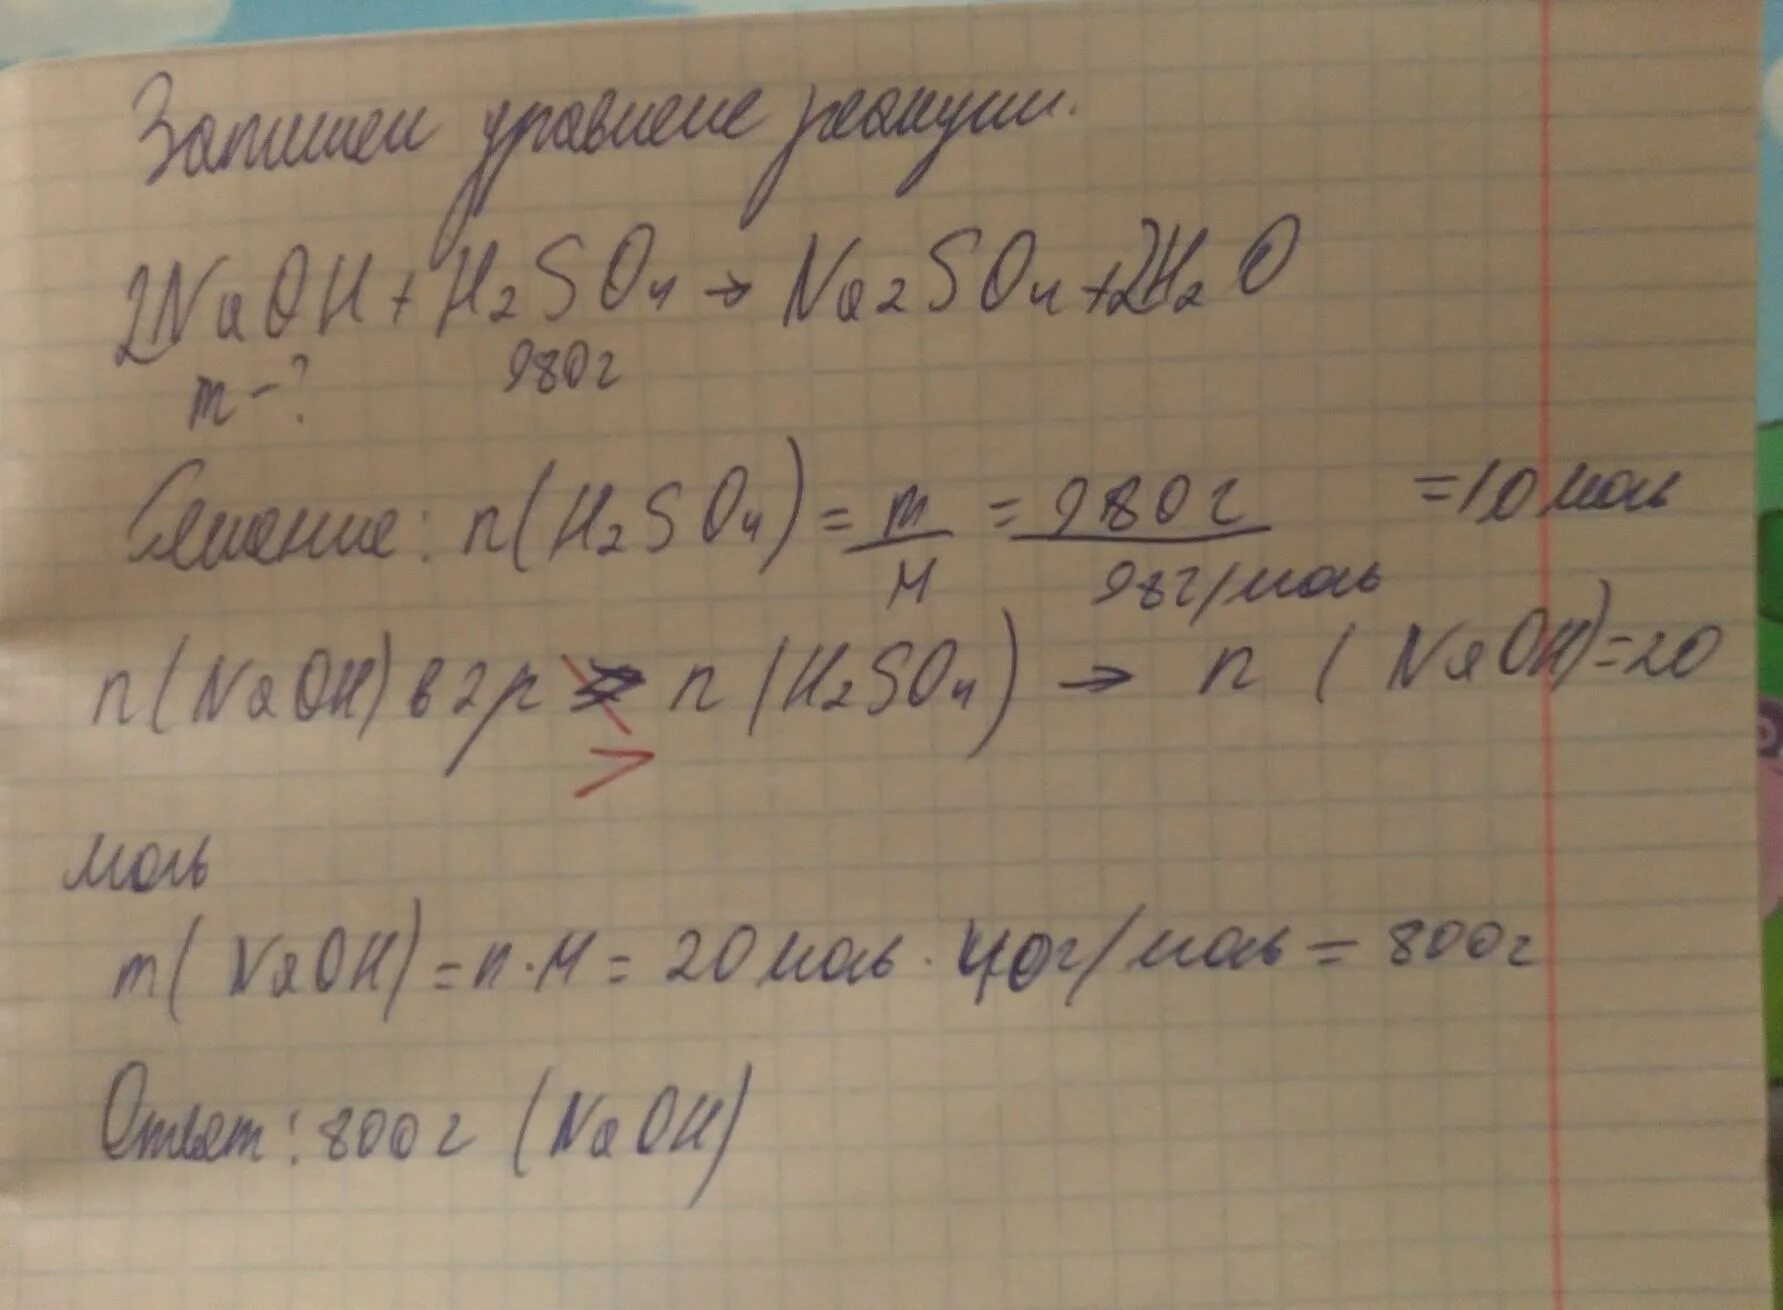 Запишем уравнене реакции.
2NaOH + H₂SO₄ → Na₂SO₄ + 2H₂O
m - ? 980г
Решение: n(H₂SO₄) = m/M = 980г/98г/моль = 10 моль
n(NaOH) в 2р > n(H₂SO₄) → n(NaOH) = 20
>
моль
m(NaOH) = n · M = 20 моль · 40г/моль = 800г
Ответ: 800г (NaOH)